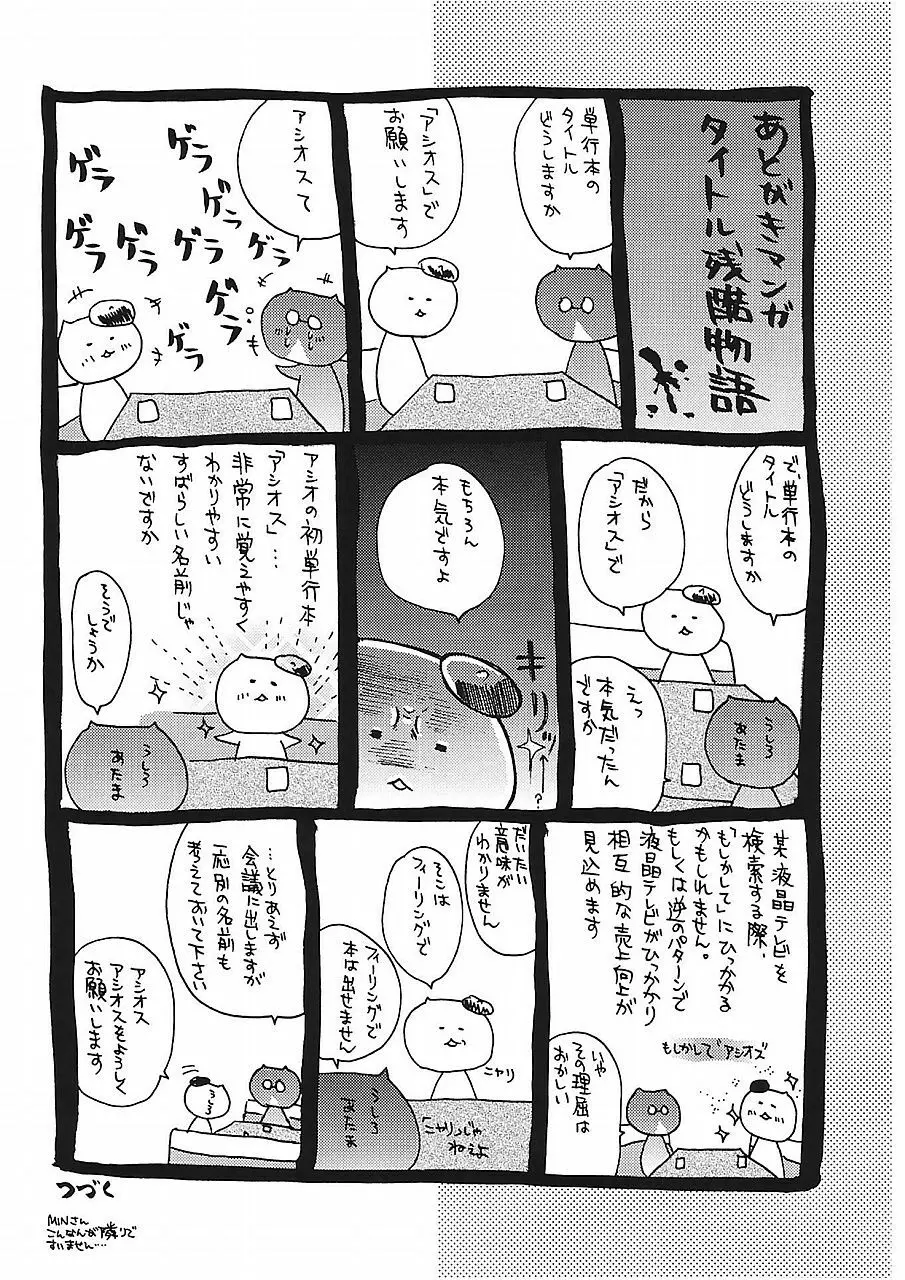 あとがきマンガ
タイトル残酷物語
単行本の
タイトル
どうしますか
「アシオス」で
お願いします
アシオスて
ゲラ
ゲラ
ゲラ
ゲラ
ゲラ
ゲラ
ゲラ
ゲラ
ゲラ
で、単行本の
タイトル
どうしますか
だから
「アシオス」で
えっ
本気だったん
ですか
うしろ
あたま
もちろん
本気ですよ
ヨリッ
?
アシオの初単行本
「アシオス」…
非常に覚えやすく
わかりやすい
すばらしい名前じゃ
ないですか
そうで
しょうか
うしろ
あたま
某液晶テレビを
検索する際、
「もしかして」にひっかかる
かもしれません。
もしくは逆のパターンで
液晶テレビがひっかかり
相互的な売上向上が
見込めます
もしかして"アシオズ"
いや
その理屈は
おかしい
だいたい
意味が
わかりません
そこは
フィーリングで
ニヤリ
フィーリングで
本は出せません
「ニヤリ」じゃ
ねぇよ
うしろ
あたま
…とりあえず
会議に出しますが
一応別の名前も
考えておいて下さい
アシオス
アシオスをよろしく
お願いします
うしろ
つづく
MINさん
こんなんが隣りで
すいません…